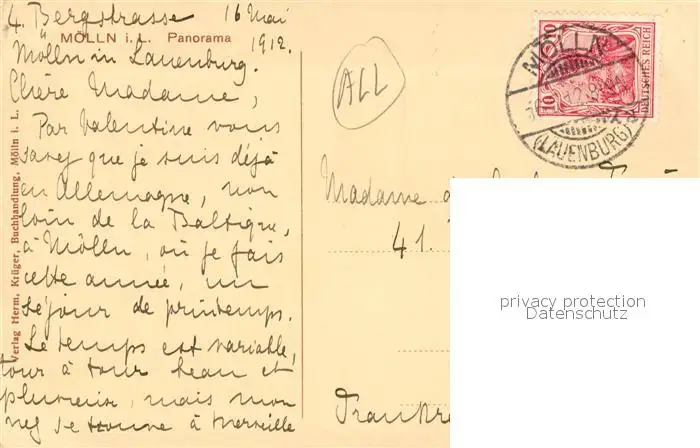 4. Bergstrasse 16 Mai
MÖLLN i. L. Panorama
1912.
Mölln in Lauenburg.
Chère Madame,
Par Valentine vous
savez que je suis déjà
en Allemagne, non
loin de la Baltique,
à Mölln, où je fais
cette année, un
séjour de printemps.
Le temps est variable,
tour à tour beau et
pluvieux, mais mon
nez se trouve à merveille
Verlag Herm. Krüger, Buchhandlung, Mölln i. L.
ALL
10 10
DEUTSCHES REICH
MÖLLN
(LAUENBURG)
Madame de
41.
Frankre
privacy protection
Datenschutz